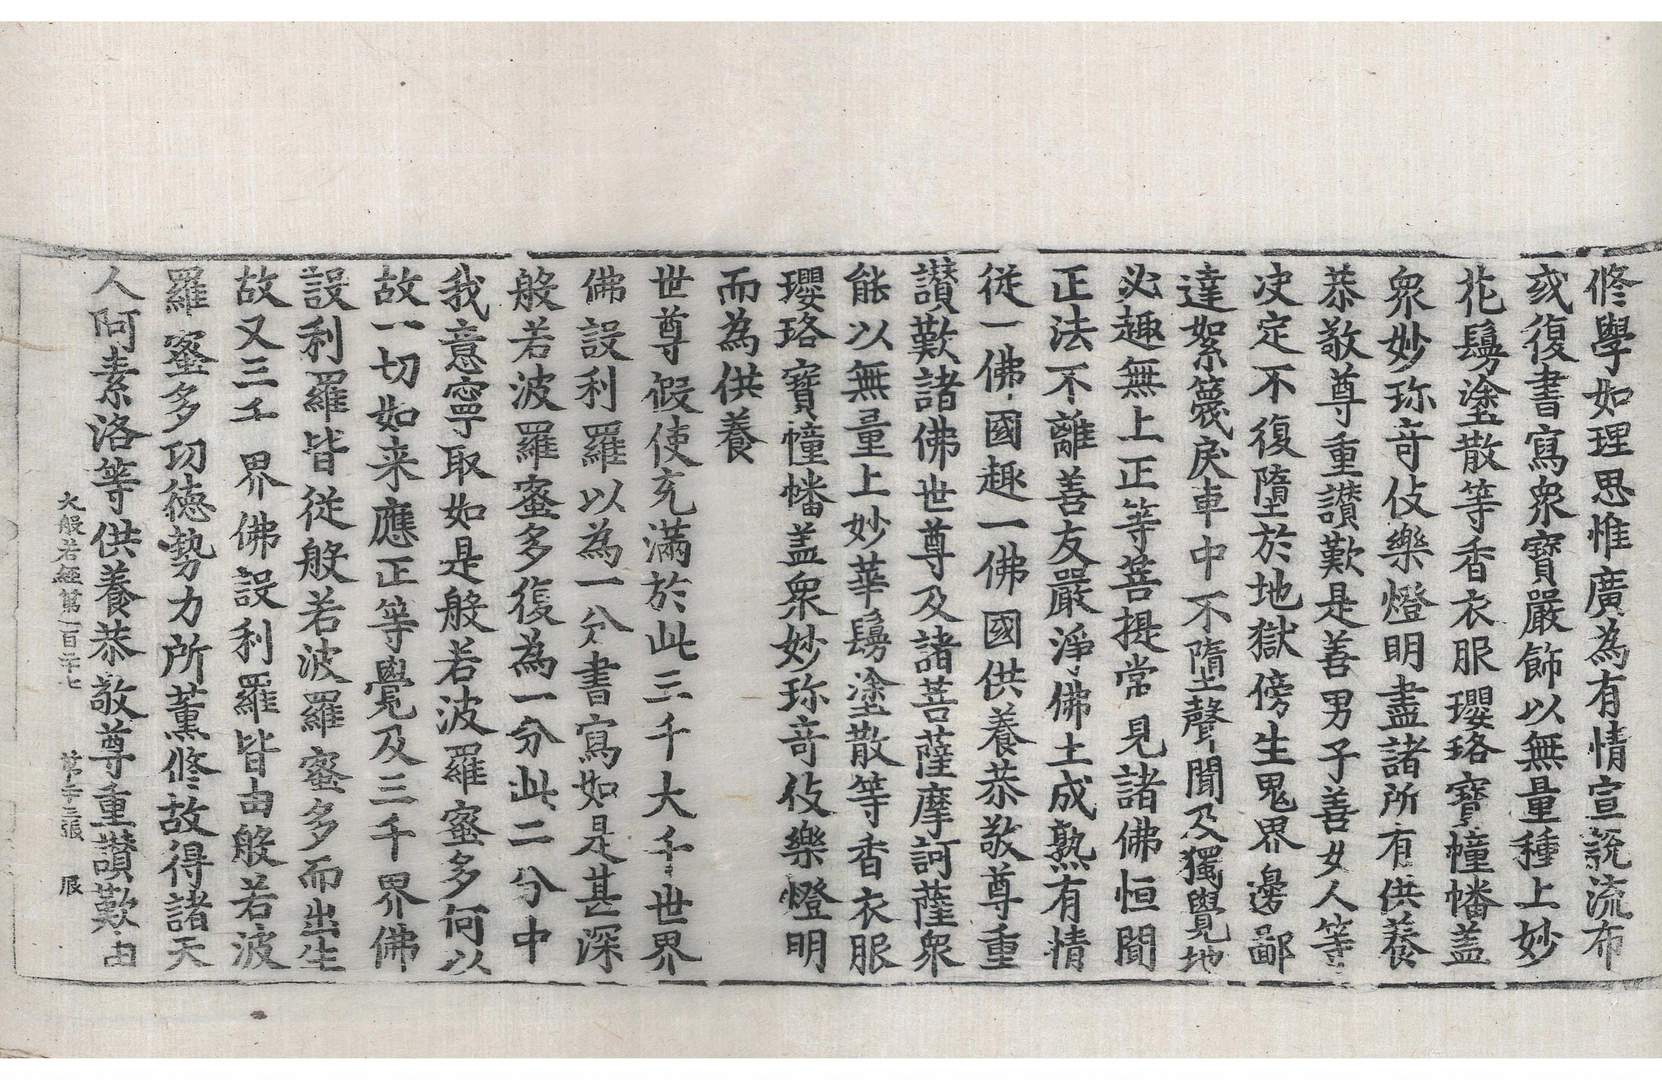 修學如理思惟廣為有情宣說流布
或復書寫衆寶嚴飾以無量種上妙
花鬘塗散等香衣服瓔珞寶幢幡盖
衆妙珎竒伎樂燈明盡諸所有供養
恭敬尊重讃歎是善男子善女人等
決定不復墮於地獄傍生鬼界邊鄙
達絮篾戾車中不墮聲聞及獨覺地
必趣無上正等菩提常見諸佛恒聞
正法不離善友嚴淨佛土成熟有情
從一佛國趣一佛國供養恭敬尊重
讃歎諸佛世尊及諸菩薩摩訶薩衆
能以無量上妙華鬘塗散等香衣服
瓔珞寶幢幡盖衆妙珎竒伎樂燈明
而為供養
世尊假使充滿於此三千大千世界
佛設利羅以為一分書寫如是甚深
般若波羅蜜多復為一分此二分中
我意寧取如是般若波羅蜜多何以
故一切如来應正等覺及三千界佛
設利羅皆從般若波羅蜜多而出生
故又三千界佛設利羅皆由般若波
羅蜜多功德勢力所薰修故得諸天
人阿素洛等供養恭敬尊重讃歎由
大般若經第一百二十七 第十三張 服